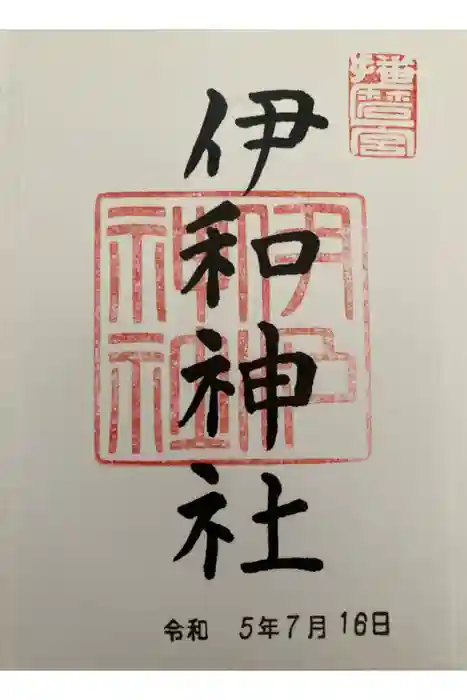 播磨一宮
伊和神社
伊和神社
令和 5年7月16日